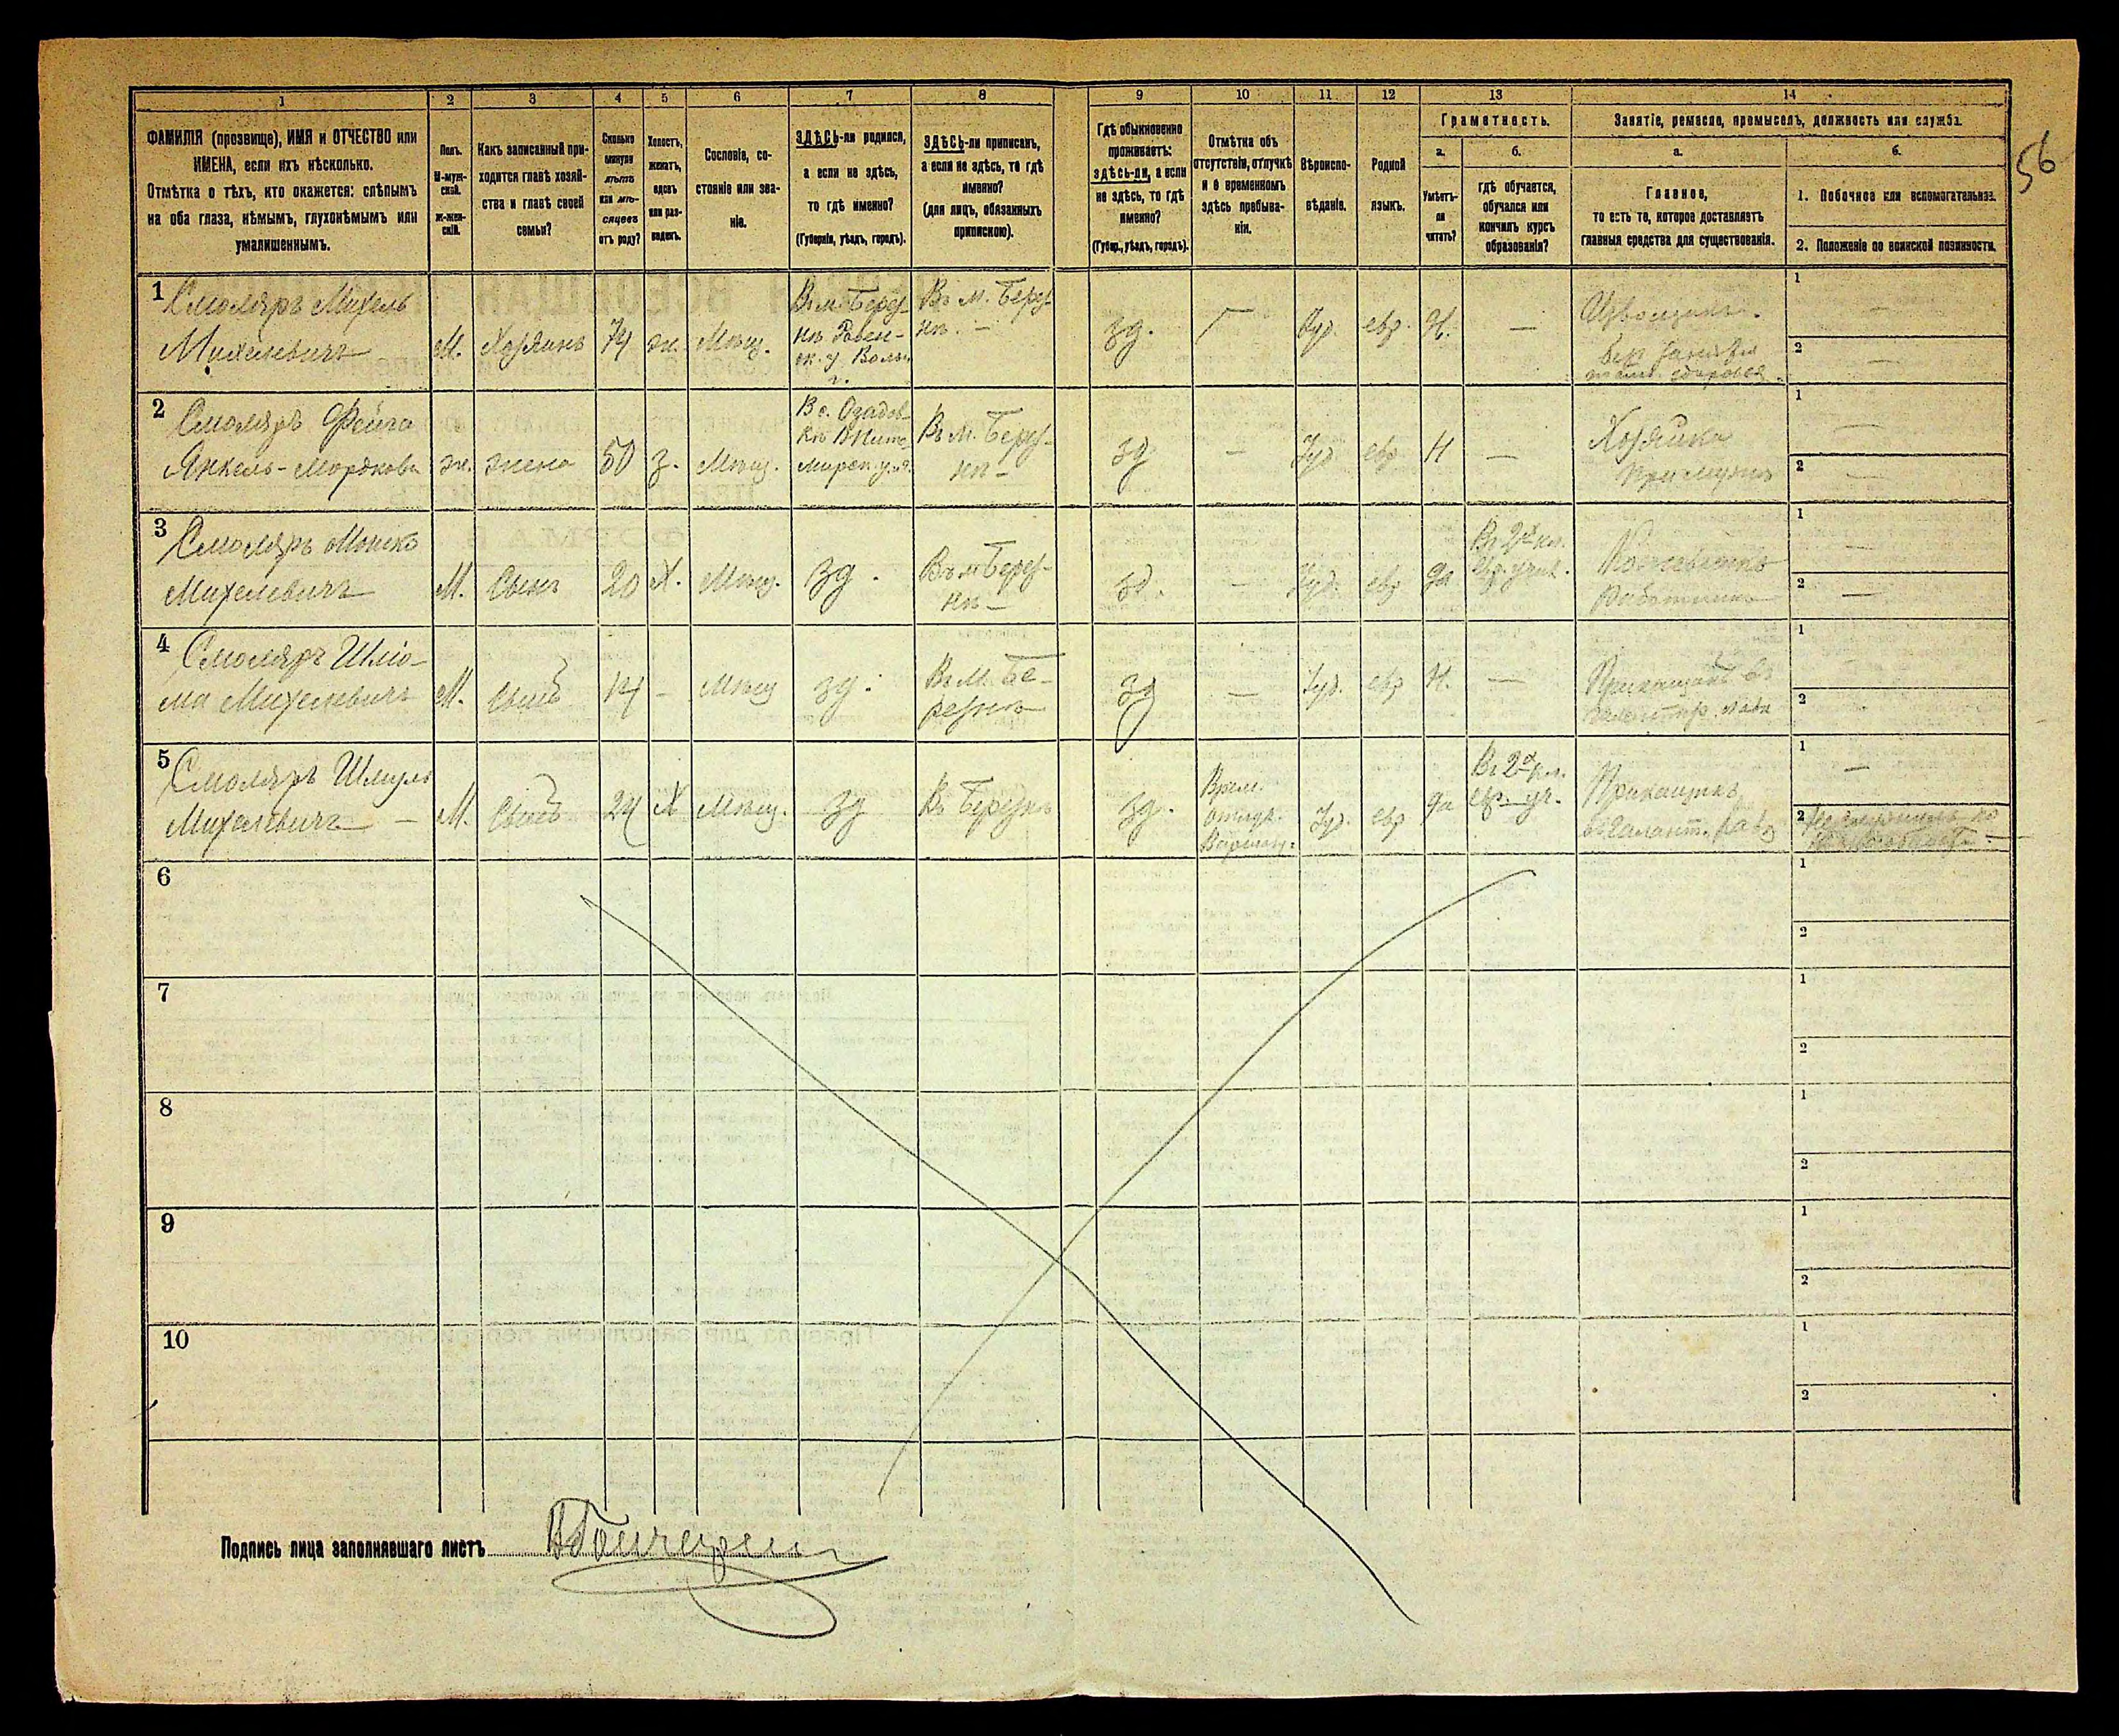 1 2 3 4 5 6 7 8 9 10 11 12 13 14
ФАМИЛІЯ (прозвище), ИМЯ и ОТЧЕСТВО или
ИМЕНА, если ихъ нѣсколько.
Отмѣтка о тѣхъ, кто окажется: слѣпымъ
на оба глаза, нѣмымъ, глухонѣмымъ или
умалишеннымъ.
Полъ.
М-муж-
ской.
Ж-жен-
скій.
Какъ записанный при-
ходится главѣ хозяй-
ства и главѣ своей
семьи?
Сколько
минуло
лѣтъ
или мѣ-
сяцевъ
отъ роду?
Холостъ,
женатъ,
вдовъ
или раз-
веденъ.
Сословіе, со-
стояніе или зва-
ніе.
ЗДѢСЬ-ли родился,
а если не здѣсь,
то гдѣ именно?
(Губернія, уѣздъ, городъ).
ЗДѢСЬ-ли приписанъ,
а если не здѣсь, то гдѣ
именно?
(для лицъ, обязанныхъ
припискою).
Гдѣ обыкновенно
проживаетъ:
здѣсь-ли, а если
не здѣсь, то гдѣ
именно?
(Губер., уѣздъ, городъ).
Отмѣтка объ
отсутствіи, отлучкѣ
и о временномъ
здѣсь пребыва-
ніи.
Вѣроиспо-
вѣданіе.
Родной
языкъ.
Грамотность.
а.
Умѣетъ-
ли
читать?
б.
гдѣ обучается,
обучался или
кончилъ курсъ
образованія?
Занятіе, ремесло, промыселъ, должность или служба.
а.
Главное,
то есть то, которое доставляетъ
главныя средства для существованія.
б.
1. Побочное или вспомогательное.
2. Положеніе по воинской повинности.
56
1 Смоляръ Михель
Михелевичъ
М. Хозяинъ 74 ж. Мѣщ.
Въ м. Берез-
нѣ Ровен-
ск. у Волын.
г.
Въ м. Берез-
нѣ. —
зд. — Іуд. евр. Н. —
Извощикъ.
1 —
2 —
2 Смоляръ Фейга
Янкель-Мордкова
ж. жена 50 з. Мѣщ.
Въ м. Берез-
нѣ —
зд — Іуд евр Н —
Хозяйка
при мужѣ
1 —
2 —
3 Смоляръ Мошко
Михелевичъ
М. Сынъ 20 Х. Мѣщ. зд.
Въ м Берез-
нѣ —
зд. — Іуд. евр да
Въ 2х кл.
евр. учил.
работникъ
1 —
2 —
4 Смоляръ Шлио-
ма Михелевичъ
М. Сынъ 14 — Мѣщ зд.
Въ м. Бе-
резнѣ
зд — Іуд. евр Н. —
Прикащикъ въ
1
2
5 Смоляръ Шмуль
Михелевичъ —
М. Сынъ 24 Х Мѣщ. зд
Въ Березнѣ
зд.
Врем.
отлуч.
Іуд. евр да
Въ 2х кл.
евр. уч.
Прикащикъ
въ галант.
1 —
2
6 1
2
7 1
2
8 1
2
9 1
2
10 1
2
Подпись лица заполнявшаго листъ